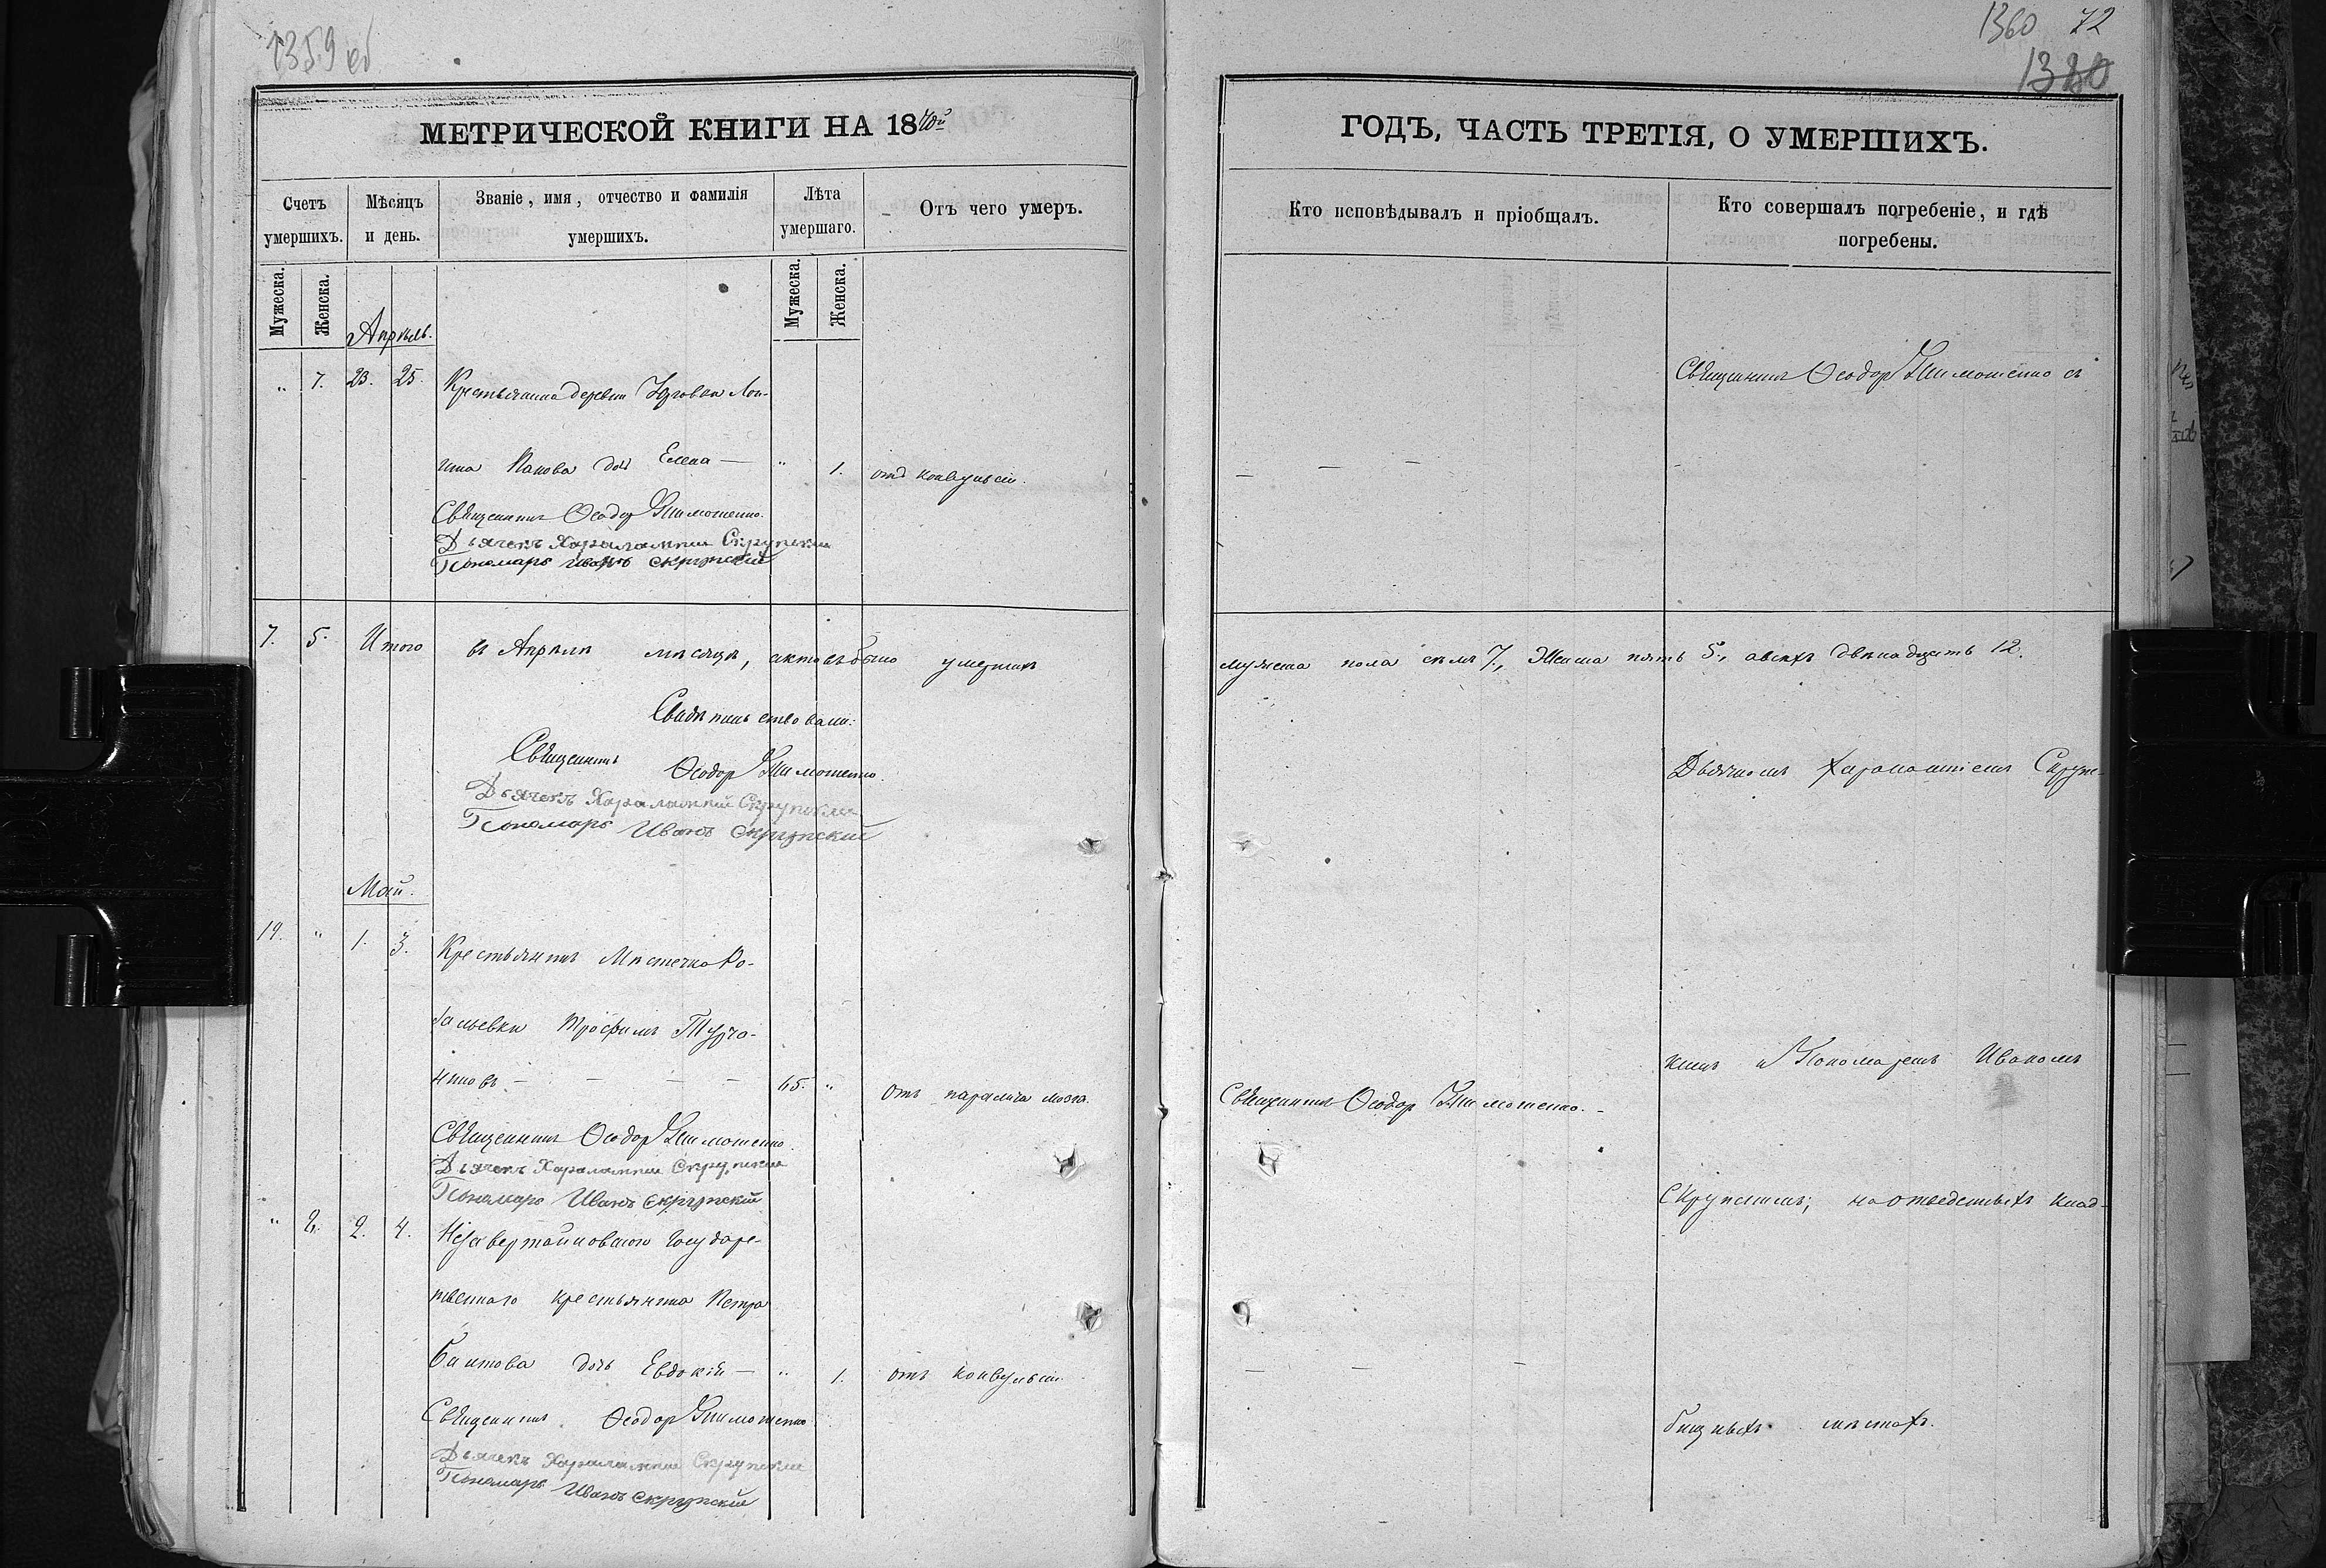 1359 об
МЕТРИЧЕСКОЙ КНИГИ НА 1870й
Счетъ умершихъ.
Мѣсяцъ и день.
Званіе, имя, отчество и фамилія умершихъ.
Лѣта умершаго.
Отъ чего умеръ.
Мужеска.
Женска.
Мужеска.
Женска.
Апрѣль.
„ 7. 23. 25. Крестьянина деревни Лон-
гина Панова дочь Елена — „ 1. отъ конвульсіи.
Священникъ Ѳеодоръ Тимошенко.
Дьячекъ Харалампій Скрупскій
Пономарь Иванъ Скрупскій
7. 5. Итого въ Апрѣлѣ мѣсяцѣ, актовъ было умершихъ
Свидѣтельствовали:
Священникъ Ѳеодоръ Тимошенко.
Дьячекъ Харалампій Скрупскій
Пономарь Иванъ Скрупскій
Май.
19. „ 1. 3. Крестьянинъ Мѣстечка Ро-
вальевки Трофимъ Турча-
ниновъ — — — — 65. „ отъ паралича мозга.
Священникъ Ѳеодоръ Тимошенко.
Дьячекъ Харалампій Скрупскій
Пономарь Иванъ Скрупскій
„ 8. 2. 4. Незавертайловскаго Государ-
ственнаго крестьянина Петра
дочь Евдокія — „ 1. отъ конвульсіи.
Священникъ Ѳеодоръ Тимошенко
Дьячекъ Харалампій Скрупскій
Пономарь Иванъ Скрупскій
1360 72
1380
ГОДЪ, ЧАСТЬ ТРЕТІЯ, О УМЕРШИХЪ.
Кто исповѣдывалъ и пріобщалъ.
Кто совершалъ погребеніе, и гдѣ погребены.
Священникъ Ѳеодоръ Тимошенко съ
— — —
мужеска пола семь 7., Женска пять 5., а всѣхъ двѣнадцать 12.
Дьячкомъ Харалампіемъ Скруп-
скимъ и Пономаремъ Иваномъ
Священникъ Ѳеодоръ Тимошенко. -
Скрупскимъ; на отведенныхъ клад-
— — —
бищныхъ мѣстахъ.